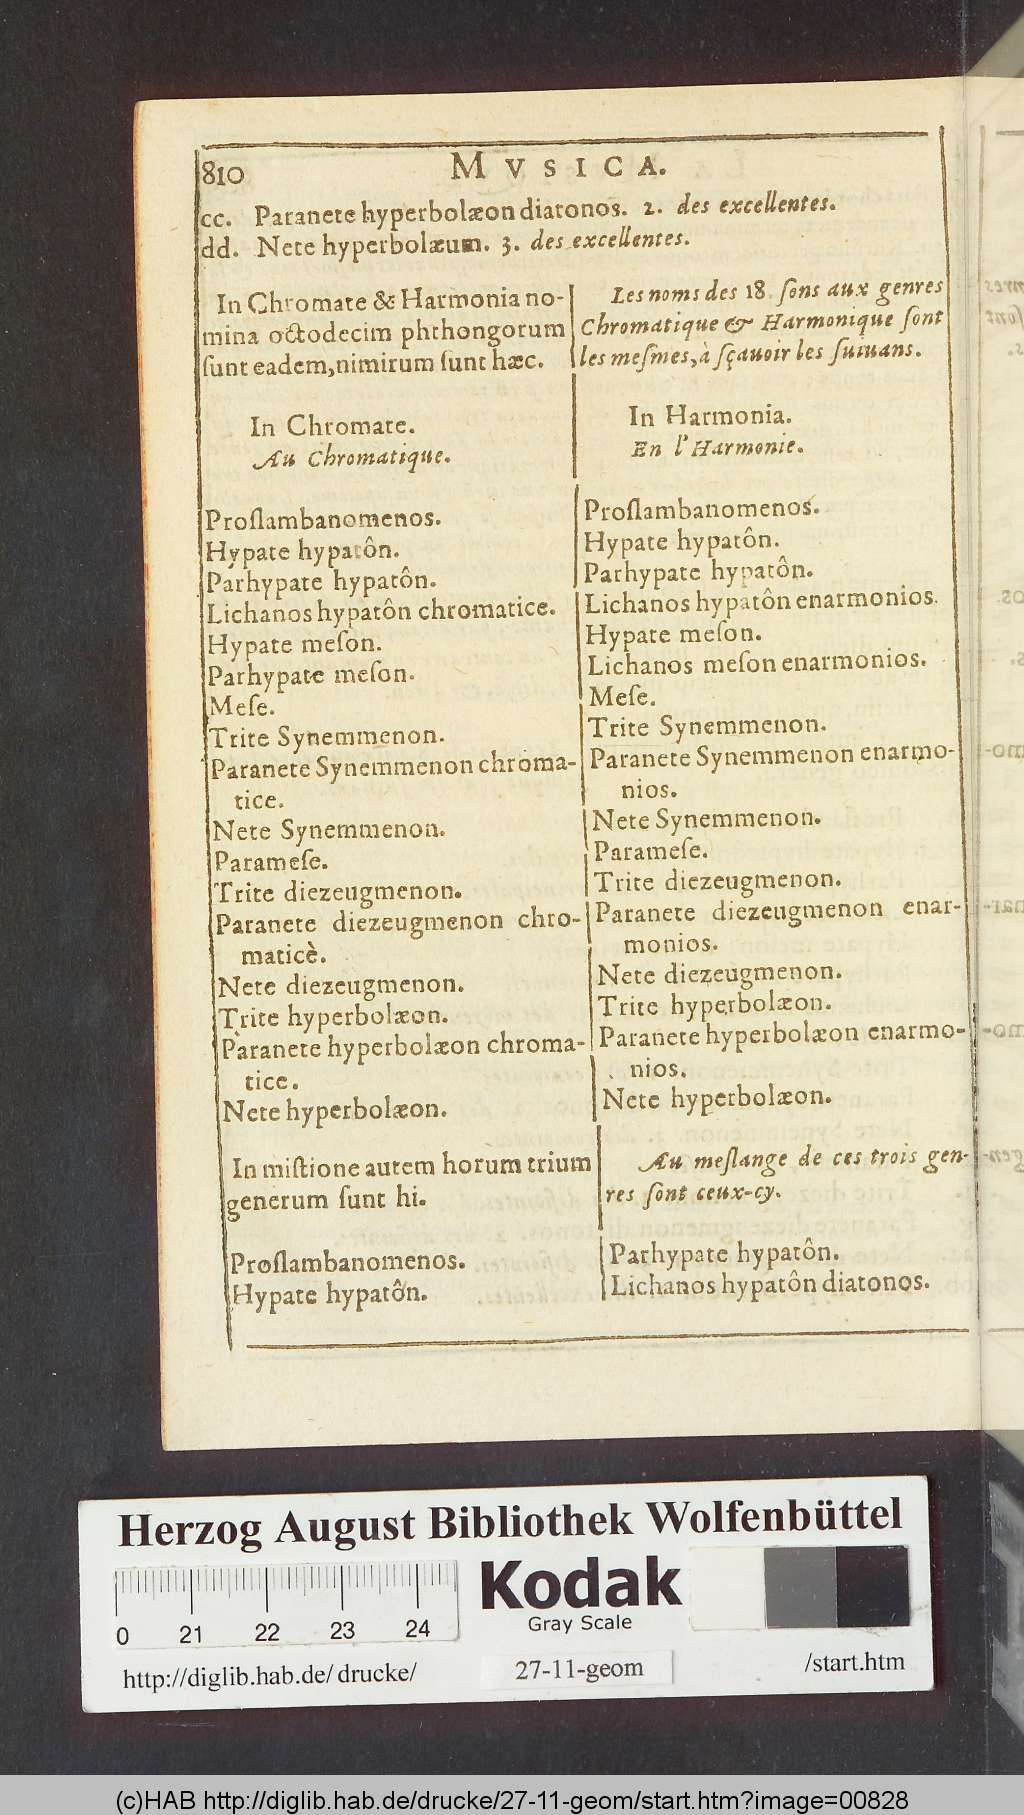 810 MVSICA.
cc. Paranete hyperbolæon diatonos. 2. des excellentes.
dd. Nete hyperbolæum. 3. des excellentes.
In Chromate & Harmonia no-
mina octodecim phthongorum
ſunt eadem, nimirum ſunt hæc.
Les noms des 18. ſons aux genres
Chromatique & Harmonique ſont
les meſmes, à ſçauoir les ſuiuans.
In Chromate.
Au Chromatique.
In Harmonia.
En l'Harmonie.
Proſlambanomenos.
Hypate hypatôn.
Parhypate hypatôn.
Lichanos hypatôn chromatice.
Hypate meſon.
Parhypate meſon.
Meſe.
Trite Synemmenon.
Paranete Synemmenon chroma-
tice.
Nete Synemmenon.
Parameſe.
Trite diezeugmenon.
Paranete diezeugmenon chro-
maticè.
Nete diezeugmenon.
Trite hyperbolæon.
Paranete hyperbolæon chroma-
tice.
Nete hyperbolæon.
Proſlambanomenos.
Hypate hypatôn.
Parhypate hypatôn.
Lichanos hypatôn enarmonios.
Hypate meſon.
Lichanos meſon enarmonios.
Meſe.
Trite Synemmenon.
Paranete Synemmenon enarmo-
nios.
Nete Synemmenon.
Parameſe.
Trite diezeugmenon.
Paranete diezeugmenon enar-
monios.
Nete diezeugmenon.
Trite hyperbolæon.
Paranete hyperbolæon enarmo-
nios.
Nete hyperbolæon.
In miſtione autem horum trium
generum ſunt hi.
Au meſlange de ces trois gen-
res ſont ceux-cy.
Proſlambanomenos.
Hypate hypatôn.
Parhypate hypatôn.
Lichanos hypatôn diatonos.
Herzog August Bibliothek Wolfenbüttel
Kodak
Gray Scale
0 21 22 23 24
http://diglib.hab.de/drucke/ 27-11-geom /start.htm
(c)HAB http://diglib.hab.de/drucke/27-11-geom/start.htm?image=00828